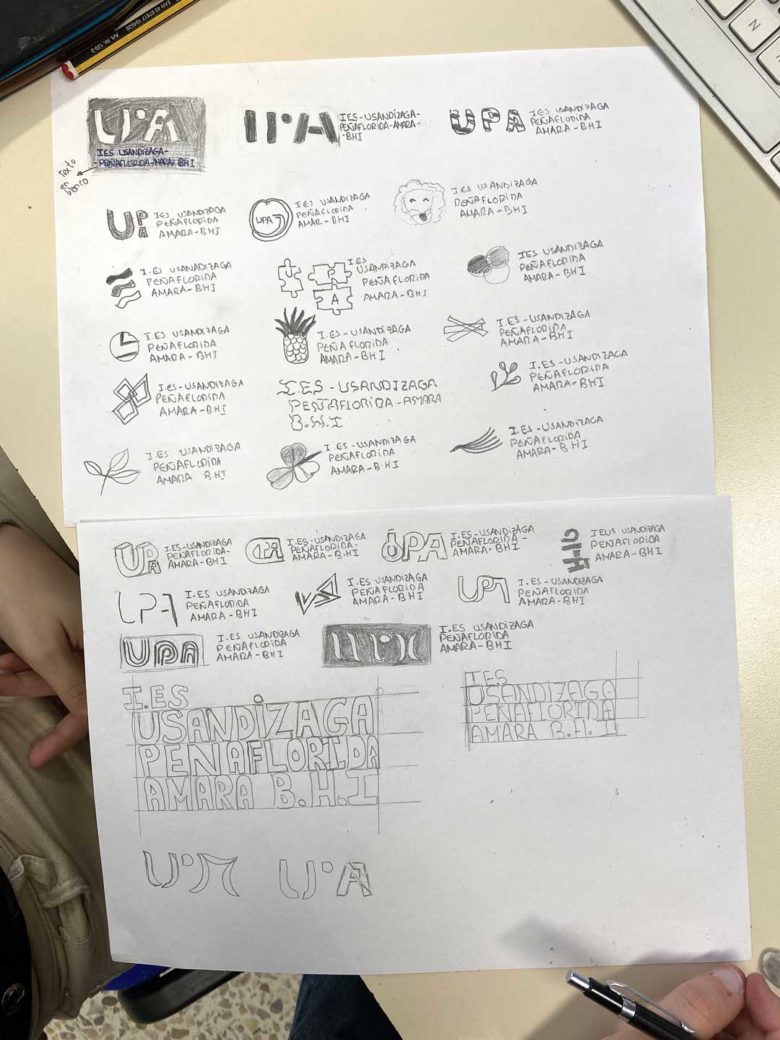 EAN 40 07817 104620
Art. Nr. 120-2
N
UPA
IES USANDIZAGA-
-PEÑAFLORIDA-AMARA-BHI
Texto
en
blanco
UPA
IES-USANDIZAGA-
-PEÑAFLORIDA-AMARA-
-BHI
UPA
IES USANDIZAGA
PEÑAFLORIDA
AMARA-BHI
UP
IES USANDIZAGA
PEÑAFLORIDA
AMARA-BHI
UPA
IES USANDIZAGA
PEÑAFLORIDA
AMAR-BHI
I.ES USANDIZAGA
PEÑAFLORIDA
AMARA-BHI
I.ES USANADIZAGA
PEÑAFLORIDA
AMARA-BHI
U
P
A
I.ES
USANDIZAGA
PEÑAFLORIDA
AMARA-BHI
IES USANDIZAGA
PEÑAFLORIDA
AMARA-BHI
I.ES USANDIZAGA
PEÑAFLORIDA
AMARA-BHI
I.ES-USANDIZAGA
PEÑAFLORIDA
AMARA-BHI
I.ES-USANDIZAGA
PEÑAFLORIDA
AMARA-BHI
I.ES-USANDIZAGA
PEÑAFLORIDA
AMARA-BHI
I.ES-USANDIZAGA
PEÑAFLORIDA-AMARA
B.H.I
I.ES-USANDIZAGA
PEÑAFLORIDA
AMARA-BHI
I.ES USANDIZAGA
PEÑAFLORIDA
AMARA BHI
I.ES-USANDIZAGA
PEÑAFLORIDA
AMARA-BHI
I.ES-USANDIZAGA
PEÑAFLORIDA
AMARA-BHI
UPA
I.ES-USANDIZAGA
PEÑAFLORIDA-
AMARA-BHI
UPA
I.ES-USANDIZAGA
PEÑAFLORIDA-
AMARA-B.HI
UPA
I.ES-USANDIZAGA
PEÑAFLORIDA-
AMARA-BHI
IEUS USANDIZAGA
PEÑAFLORIDA
AMARA-BHI
UPA
I.ES USANDIZAGA
PEÑAFLORIDA
AMARA-BHI
I.ES USANDIZAGA
PEÑAFLORIDA
AMARA-BHI
UPA
I.ES-USANDIZAGA
PEÑAFLORIDA
AMARA-BHI
UPA
I.ES USANDIZAGA
PEÑAFLORIDA
AMARA-BHI
I.ES USANDIZAGA
PEÑAFLORIDA
AMARA-BHI
I.ES
USANDIZAGA
PEÑAFLORIDA
AMARA B.H.I
I.ES
USANDIZAGA
PEÑAFLORIDA
AMARA B.H.I
UPA
UPA